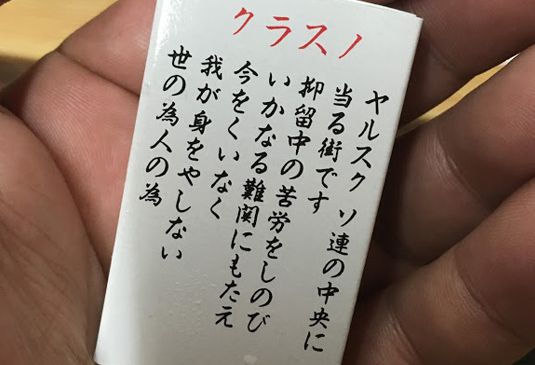 クラスノ
ヤルスク ソ連の中央に
当る街です
抑留中の苦労をしのび
いかなる難関にもたえ
今をくいなく
我が身をやしない
世の為人の為